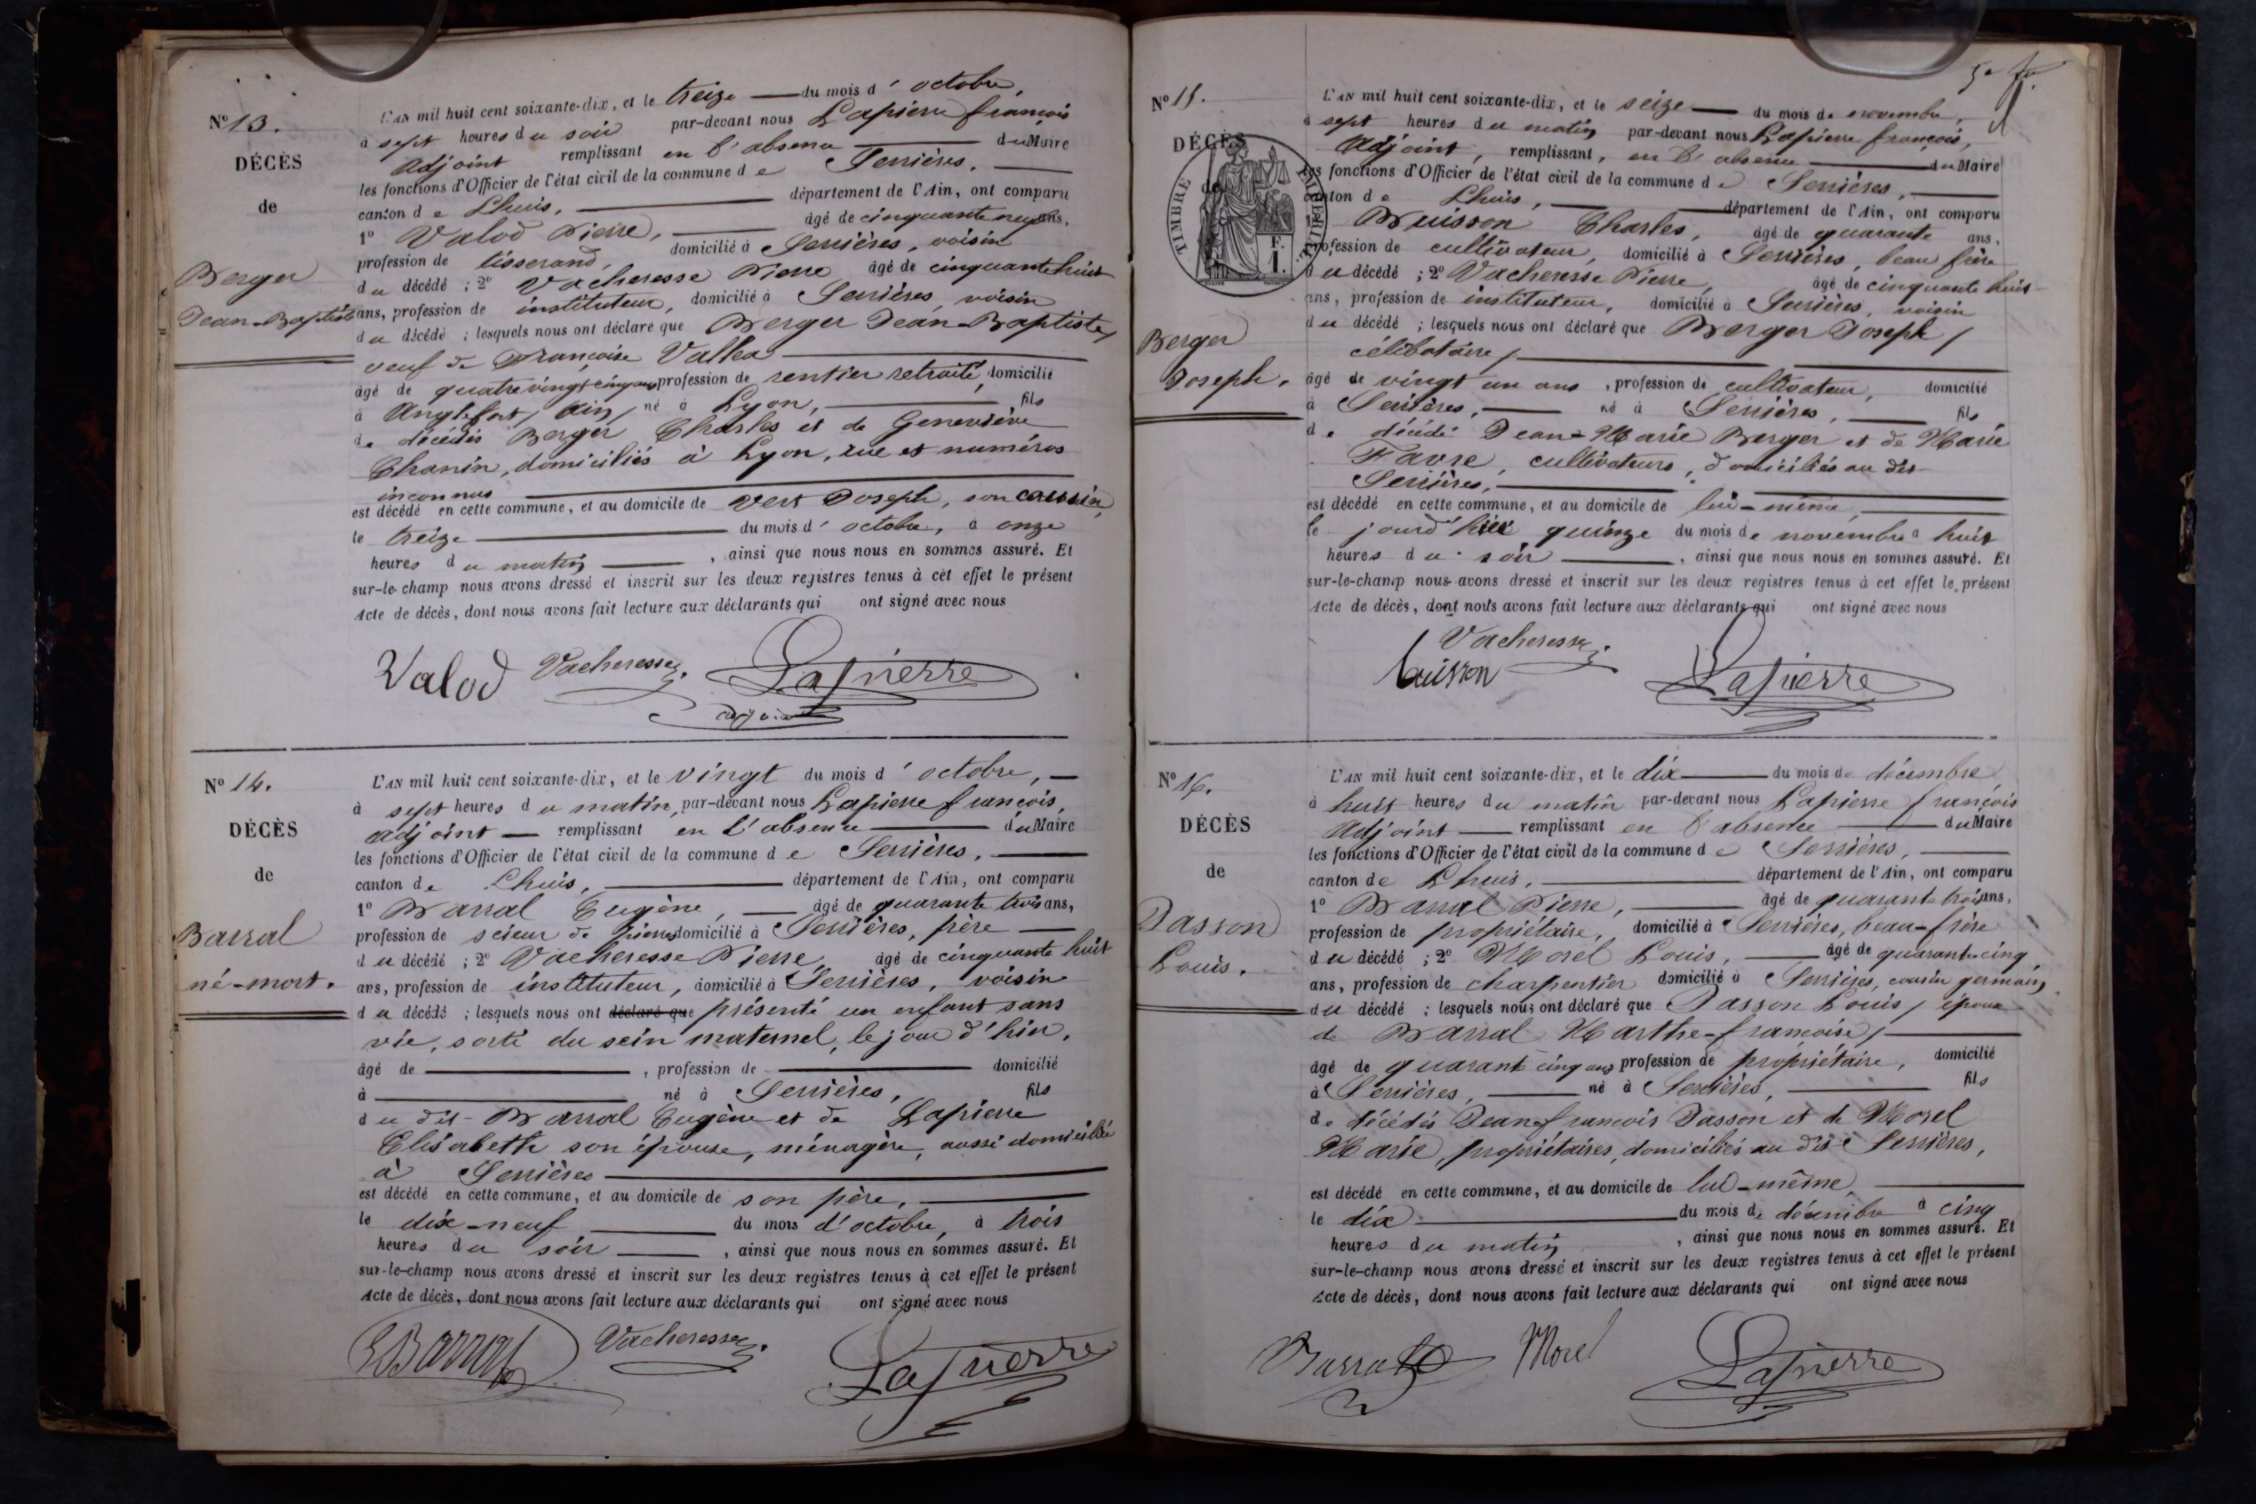 N° 13.
DÉCÈS
de
Berger
Jean-Baptiste
L'AN mil huit cent soixante-dix, et le treize du mois d'octobre,
à sept heures du soir par-devant nous Lapierre françois
adjoint remplissant en l'absence du Maire
les fonctions d'Officier de l'état civil de la commune de Serrières,
canton de Lhuis, département de l'Ain, ont comparu
1° Valod Pierre, âgé de cinquante neuf ans,
profession de tisserand, domicilié à Serrières, voisin
du décédé ; 2° Vacheresse Pierre âgé de cinquante huit
ans, profession de instituteur, domicilié à Serrières, voisin
du décédé ; lesquels nous ont déclaré que Berger Jean-Baptiste,
veuf de Françoise Vallea
âgé de quatre vingt cinq ans profession de rentier retraité, domicilié
à Anglefort, Ain, né à Lyon, fils
de décédés Berger Charles et de Geneviève
Chanin, domiciliés à Lyon, rue et numéros
inconnus
est décédé en cette commune, et au domicile de Vert Joseph, son cousin,
le treize du mois d'octobre, à onze
heures du matin , ainsi que nous nous en sommes assuré. Et
sur-le-champ nous avons dressé et inscrit sur les deux registres tenus à cet effet le présent
Acte de décès, dont nous avons fait lecture aux déclarants qui ont signé avec nous
Valod Vacheresse Lapierre
adjoint
N° 14.
DÉCÈS
de
Barral
né-mort.
L'AN mil huit cent soixante-dix, et le vingt du mois d'octobre,
à sept heures du matin, par-devant nous Lapierre françois,
adjoint remplissant en l'absence du Maire
les fonctions d'Officier de l'état civil de la commune de Serrières,
canton de Lhuis, département de l'Ain, ont comparu
1° Barral Eugène, âgé de quarante trois ans,
profession de scieur de pierres domicilié à Serrières, père
du décédé ; 2° Vacheresse Pierre âgé de cinquante huit
ans, profession de instituteur, domicilié à Serrières, voisin
du décédé ; lesquels nous ont déclaré que présenté un enfant sans
vie, sorti du sein maternel, le jour d'hier,
âgé de , profession de domicilié
à né à Serrières, fils
du dit Barral Eugène et de Lapierre
Elisabeth son épouse, ménagère, aussi domiciliée
à Serrières
est décédé en cette commune, et au domicile de son père,
le dix-neuf du mois d'octobre, à trois
heures du soir , ainsi que nous nous en sommes assuré. Et
sur-le-champ nous avons dressé et inscrit sur les deux registres tenus à cet effet le présent
Acte de décès, dont nous avons fait lecture aux déclarants qui ont signé avec nous
E Barral Vacheresse Lapierre
N° 15.
DÉCÈS
de
TIMBRE IMPÉRIAL
F.
1.
Berger
Joseph.
L'AN mil huit cent soixante-dix, et le seize du mois de novembre,
à sept heures du matin par-devant nous Lapierre françois,
adjoint, remplissant, en l'absence du Maire
les fonctions d'Officier de l'état civil de la commune de Serrières,
canton de Lhuis, département de l'Ain, ont comparu
Buisson Charles, âgé de quarante ans,
profession de cultivateur, domicilié à Serrières, beau frère
du décédé ; 2° Vacheresse Pierre, âgé de cinquante huit
ans, profession de instituteur, domicilié à Serrières, voisin
du décédé ; lesquels nous ont déclaré que Berger Joseph,
célibataire,
âgé de vingt un ans , profession de cultivateur, domicilié
à Serrières, né à Serrières, fils
de décédé Jean-Marie Berger et de Marie
Favre, cultivateurs, domiciliés au dit
Serrières,
est décédé en cette commune, et au domicile de lui-même,
le jourd'hier quinze du mois de novembre à huit
heures du soir , ainsi que nous nous en sommes assuré. Et
sur-le-champ nous avons dressé et inscrit sur les deux registres tenus à cet effet le présent
Acte de décès, dont nous avons fait lecture aux déclarants qui ont signé avec nous
Vacheresse
buisson Lapierre
N° 16.
DÉCÈS
de
Dasson
Louis.
L'AN mil huit cent soixante-dix, et le dix du mois de décembre
à huit heures du matin par-devant nous Lapierre françois
adjoint remplissant en l'absence du Maire
les fonctions d'Officier de l'état civil de la commune de Serrières,
canton de Lhuis, département de l'Ain, ont comparu
1° Barral Pierre, âgé de quarante trois ans,
profession de propriétaire, domicilié à Serrières, beau-frère
du décédé ; 2° Morel Louis, âgé de quarante cinq
ans, profession de charpentier domicilié à Serrières, cousin germain
du décédé ; lesquels nous ont déclaré que Dasson Louis, époux
de Barral Marthe-françoise,
âgé de quarante cinq ans profession de propriétaire, domicilié
à Serrières, né à Serrières, fils
de décédés Jean françois Dasson et de Morel
Marie, propriétaires, domiciliés au dit Serrières,
est décédé en cette commune, et au domicile de lui-même,
le dix du mois de décembre à cinq
heures du matin , ainsi que nous nous en sommes assuré. Et
sur-le-champ nous avons dressé et inscrit sur les deux registres tenus à cet effet le présent
Acte de décès, dont nous avons fait lecture aux déclarants qui ont signé avec nous
Barral Morel Lapierre